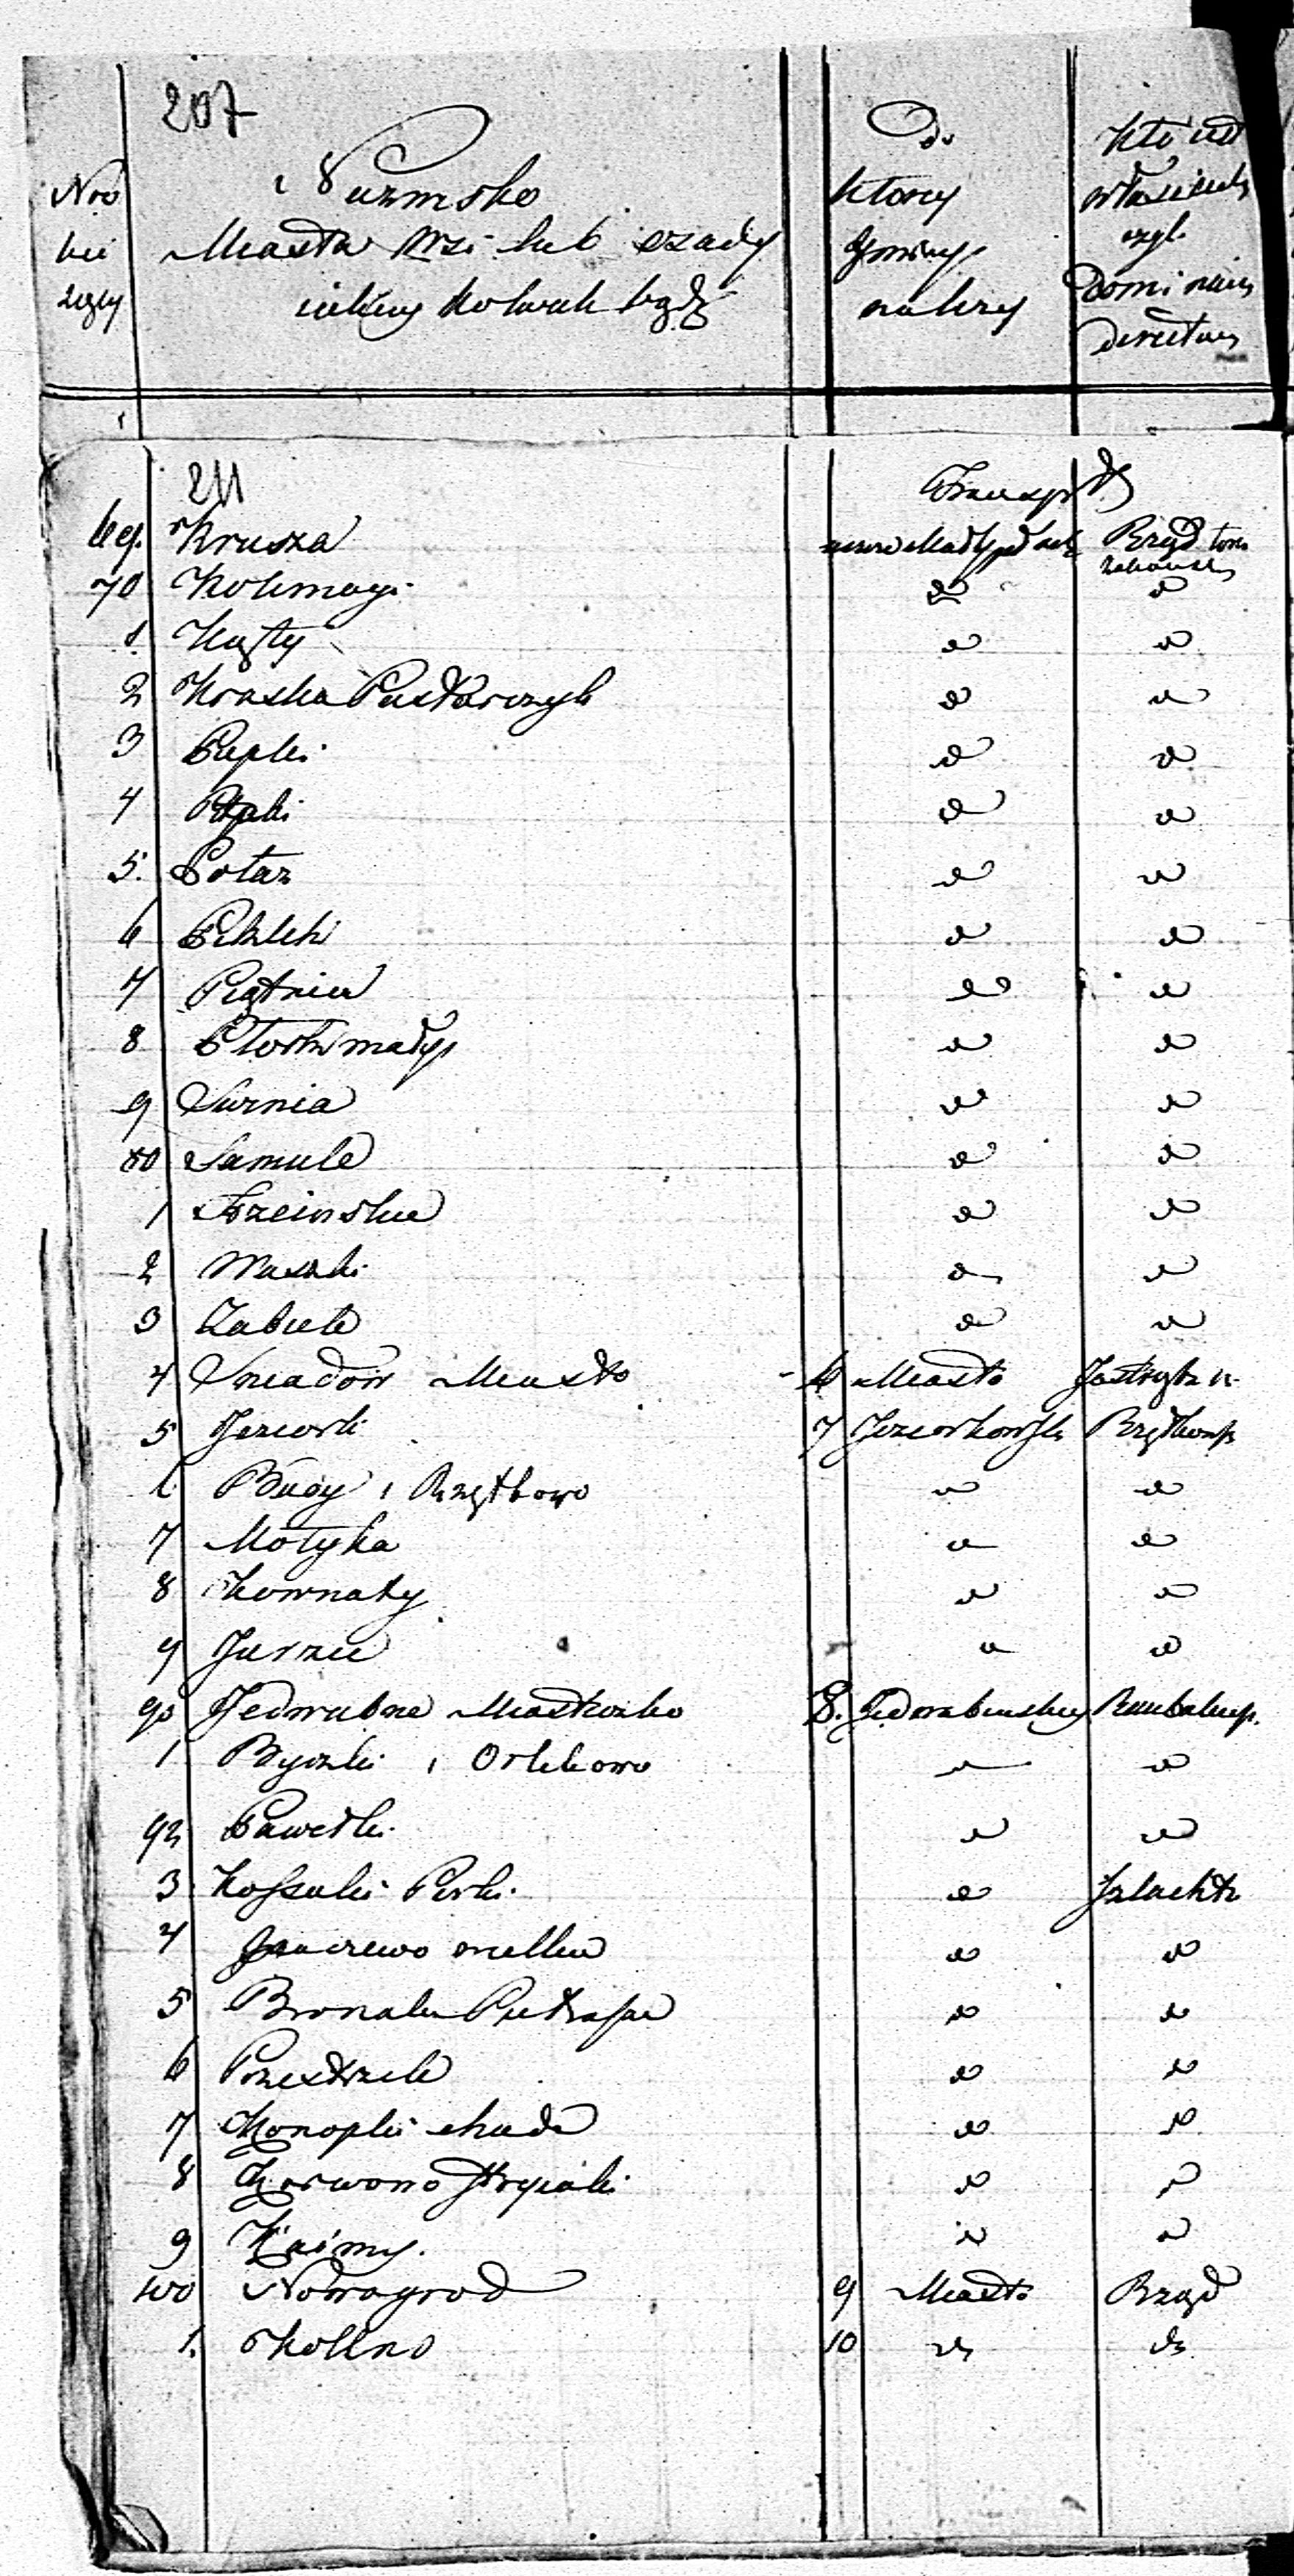 207
Nro bie zący | Nazwisko Miasta wsi lub osady iakiey kolwiek bądź | Do ktorey Gminy należy | Kto iest właścicielem czyli Dominium directum
1
211
Transport
69. Krusza Rząd
70 Kolimagi do do
1. Kąty do do
2 Kraska Pustkowczyk do do
3 Pupki do do
4 Ptaki do do
5. Potaz do do
6 do do
7 Piątnica do do
8 Ptocki małe do do
9 Surnia do do
80 Samule do do
1 do do
2 Waszki do do
3 Zabiele do do
4 Sniadow Miasto 6 Miasto
5 Jeziorki 7 Jeziorkowska Rządkowsk
6 Budy i Rządkowo do do
7 Motyka do do
8 Kownaty do do
9 Jurzec do do
90 Jedwabne Miasteczko 8. Jedwabinskey
1 Byczki i Orlikowo do do
92 Pawełki do do
3 Kossaki Pirki do Szlachta
4 Janczewo wielkie do do
5 Bronaki Pietrasze do do
6 Przestrzele do do
7 Konopki chude do do
8 Karwowo do do
9 Kaimy. do do
100 Nowogrod 9 Miasto Rząd
1. Kollno 10 do do